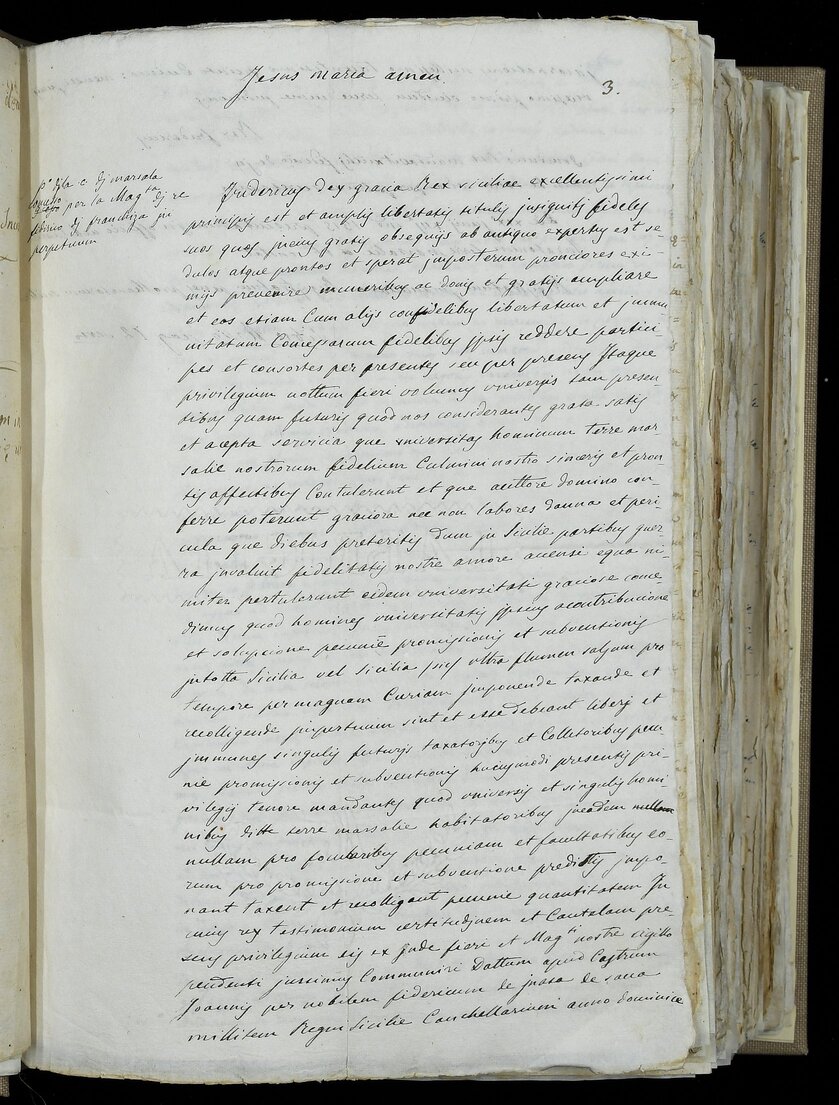 Jesus maria amen
3.
p.º dila c. dj marsala
concesso
per la Mag.ta dj re
fiderico dj franchiza in
perpetuum
Fridericus dex gracia Rex siciliae excellentissimi
principis est et amplis libertatis titulis insignitj fideles
suos quos plenis gratis obsequijs ab antiquo expertus est se-
dulos atque prontos et sperat imposterum promciores exi-
mijs prevenire muneribus ac donis et gratijs ampliare
et eos etiam Cum alijs confidelibus libertatum et jmmu
nitatum Comesarum fidelibus jpsis reddere partici-
pes et consortes per presentes seu per presens Itaque
privilegium nottum fieri volumus vniversis tam presen-
tibus quam futuris quod nos considerantes grata satis
et acepta servicia que vniversitas hominum terre mar
salie nostrorum fidelium Culmini nostro sinceris et pron
tis affectibus Contulerunt et que auttore domino con-
ferre poterunt graciora nec non labores danna et peri-
cula que diebus preteritis dum in Sicilie partibus guer-
ra jnvaluit fidelitatis nostre amore accensi equa ni-
miter pertulerunt eidem vniversitati graciose conce-
dimus quod homines vniversitatis jpsius acontribucione
et soluptione peccunie promissionis et subventionis
jn totta Sicilia vel Sicilia jpsa vltra flumen salsum pro
tempore per magnam Curiam jmponende taxande et
recolligende jmperpetuum sint et esse debeant liberj et
jmmunes singulis futuris taxatoribus et Colletoribus pecu
nie promissionis et subventionis hucusmodi presentis pri-
vilegij tenore mandantes quod vniversis et singulis homi-
nibus ditte terre marsalie habitatoribus jneadem
nullam pro focularibus pecuniam et facultatibus eo-
rum pro promissione et subventione preditta jmpo
nant taxent et recolligant pecunie quantitatem In
cuius rey testimonium certitudjnem et Cautelam pre-
sens privilegium eis ex Jnde fieri et Mag.tis nostre sigillo
pendenti jussimus Communiri Dattum apud Castrum
Joannis per nobilem fidericum de jnasa de sava
millitem Regni Sicilie Canchellarium anno dominice